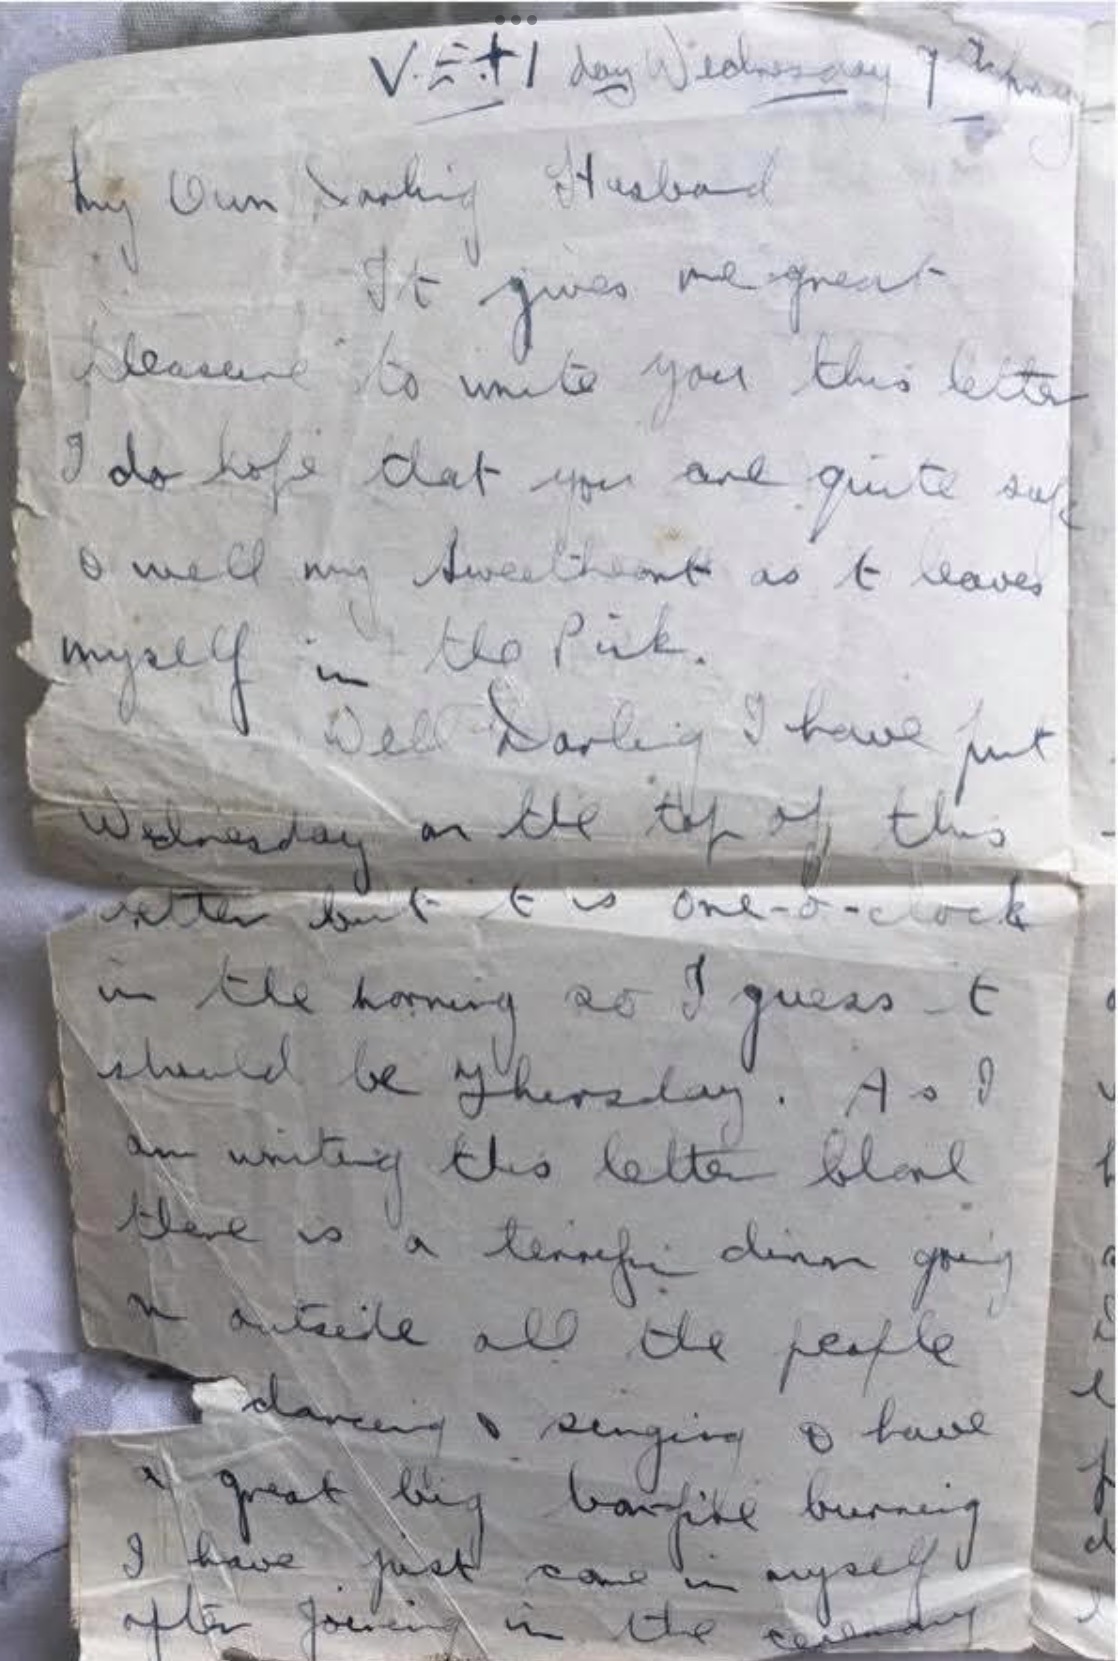 V.E.+1 day Wednesday 9th
My Own Darling Husband
It gives me great
pleasure to write you this letter
I do hope that you are quite safe
& well my Sweetheart as it leaves
myself in the Pink.
Well Darling I have put
Wednesday on the top of this
letter but it is one-o-clock
in the morning so I guess it
should be Thursday. As I
am writing this letter
there is a terrific dinn going
on outside all the people
dancing & singing & have
a great big bonfire burning
I have just come in myself
after joining in the ceremony